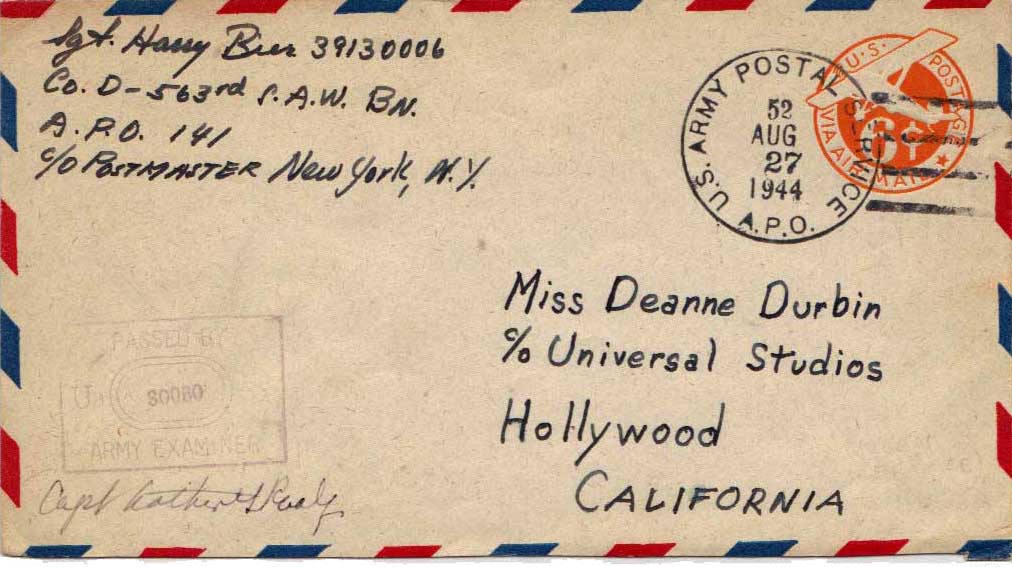 Sgt. Harry Bier 39130006
Co. D-563rd S.A.W. BN.
A.P.O. 141
c/o POSTMASTER New York, N.Y.
U.S. ARMY POSTAL SERVICE
52
AUG
27
1944
A.P.O.
U.S. POSTAGE
6¢
VIA AIR MAIL
Miss Deanne Durbin
c/o Universal Studios
Hollywood
CALIFORNIA
PASSED BY
U.S.
30080
ARMY EXAMINER
Capt